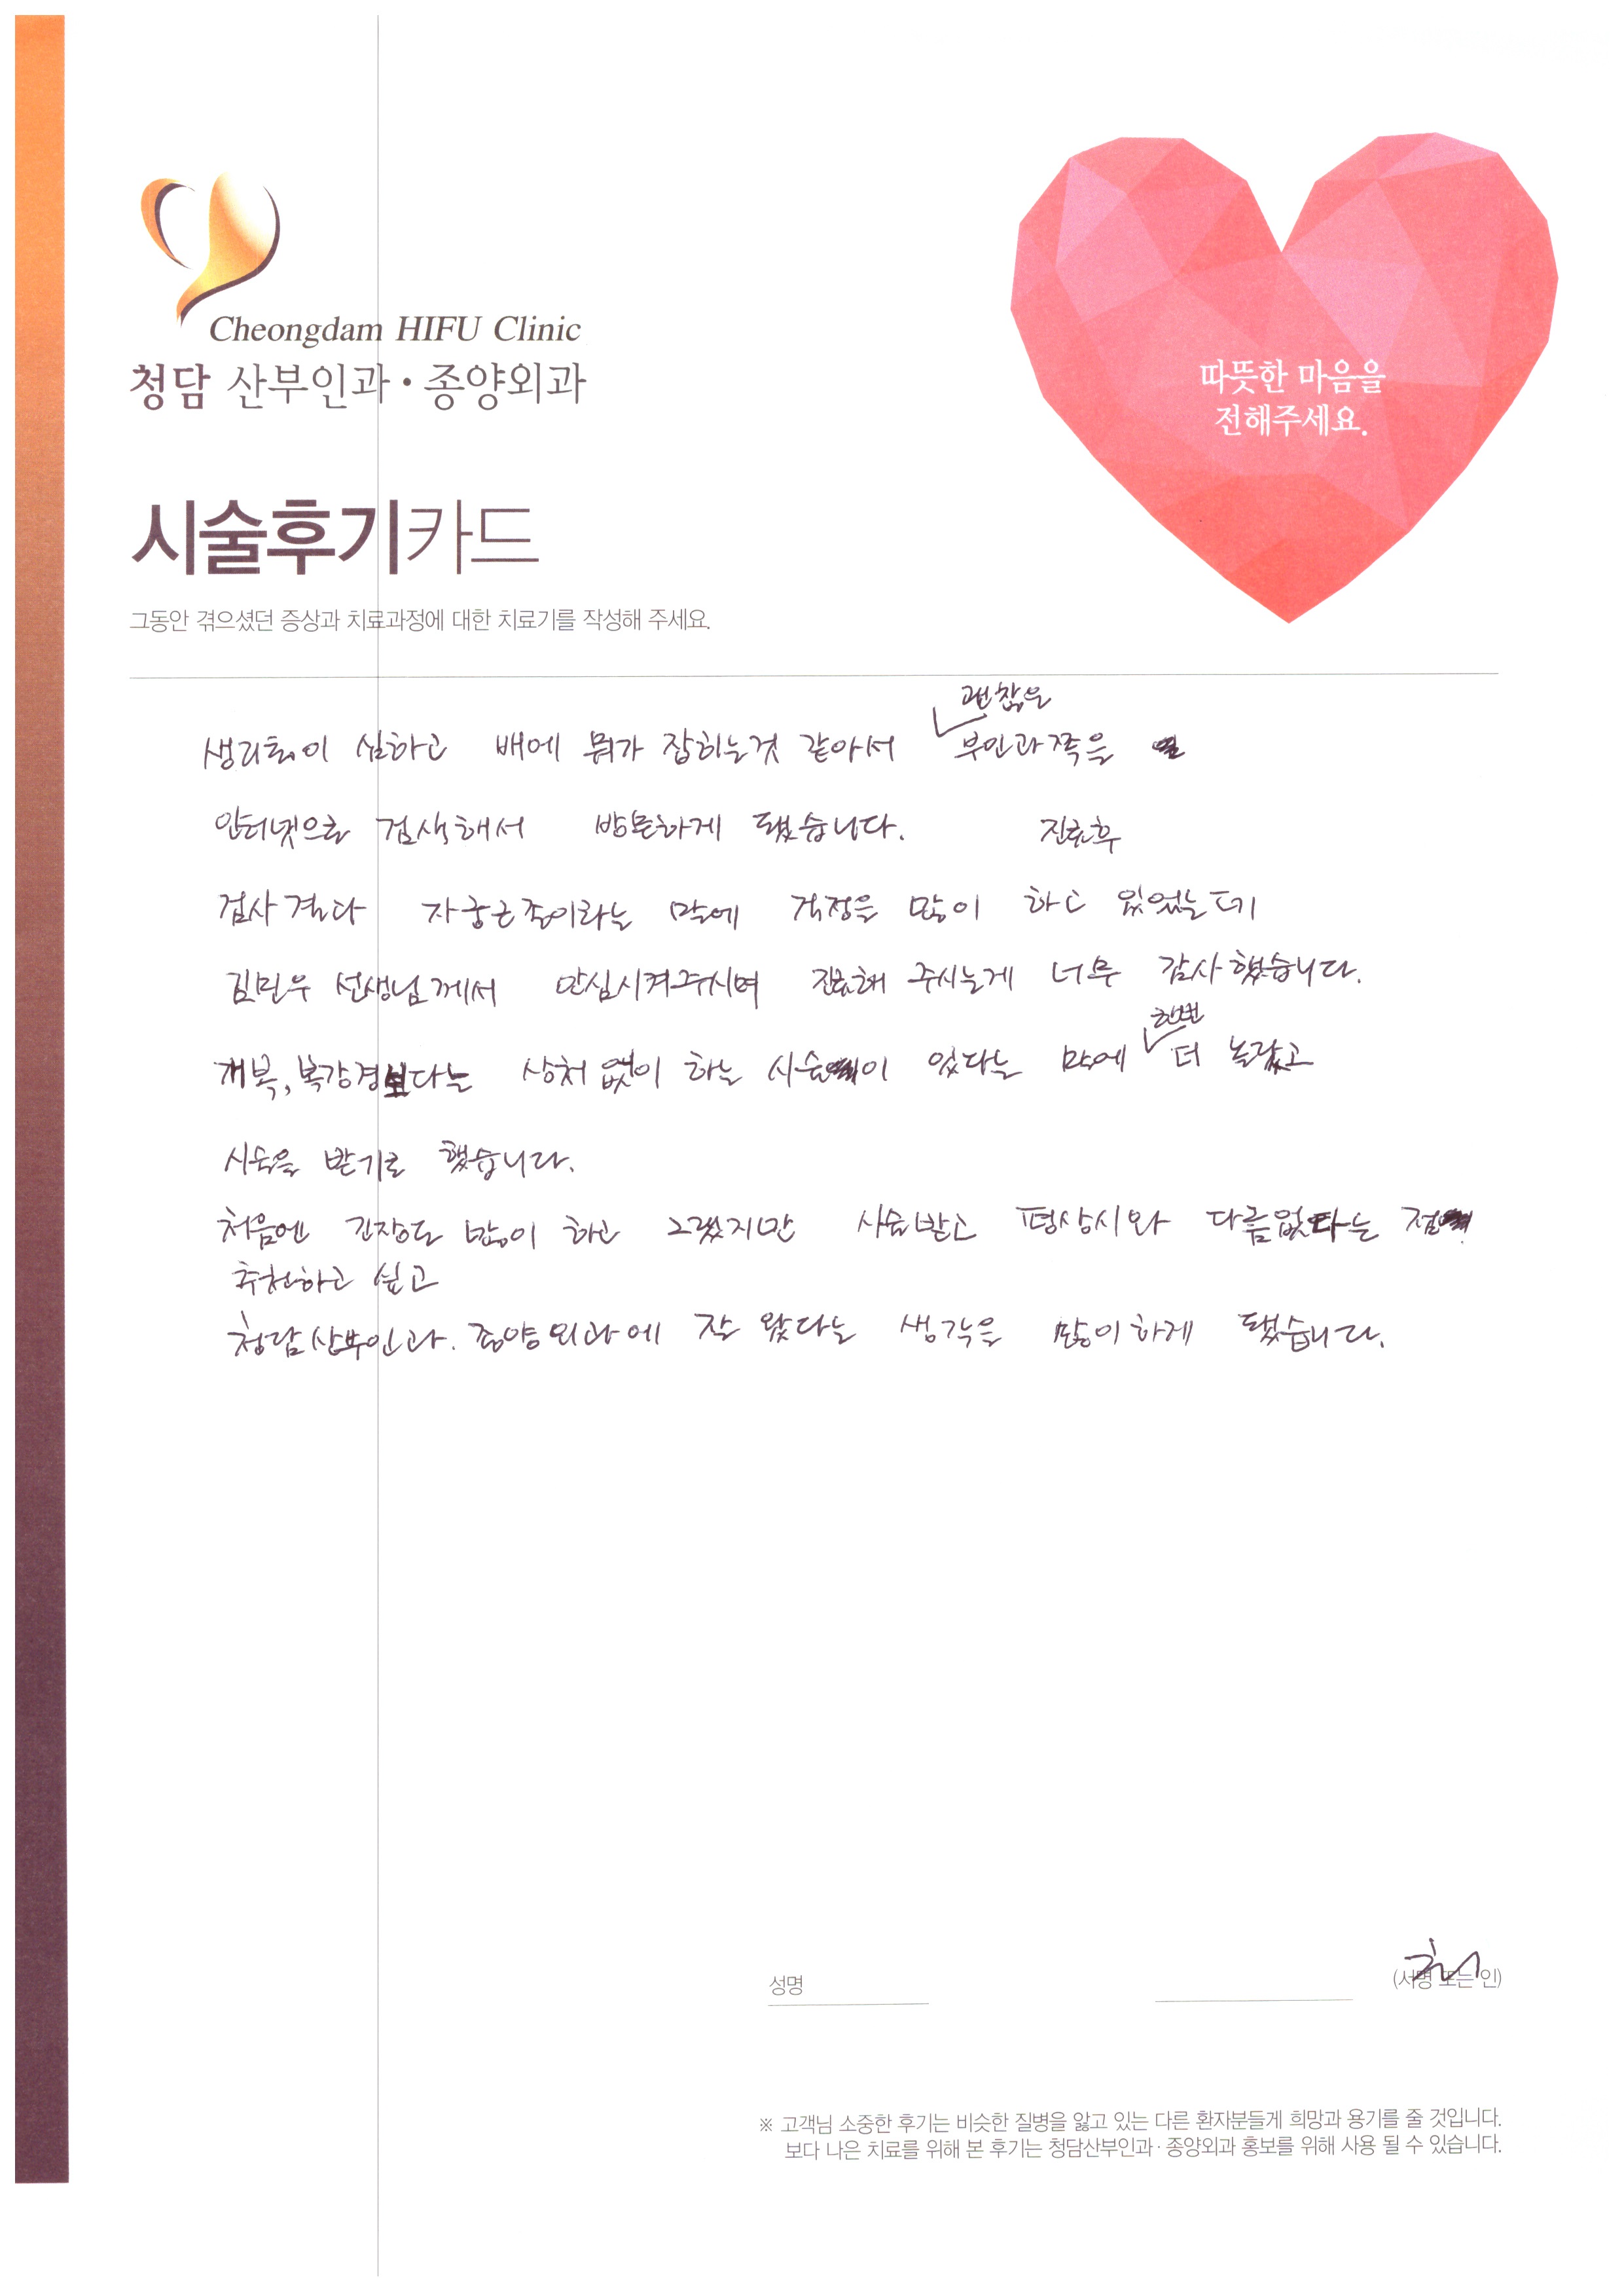 Cheongdam HIFU Clinic
청담 산부인과·종양외과
따뜻한 마음을
전해주세요.
시술후기카드
그동안 겪으셨던 증상과 치료과정에 대한 치료기를 작성해 주세요.
괜찮은
생리통이 심하고 배에 뭐가 잡히는것 같아서 부인과쪽을
인터넷으로 검색해서 방문하게 됐습니다. 진료후
검사결과 자궁근종이라는 말에 걱정을 많이 하고 있었는데
김민우 선생님께서 안심시켜주시며 진료해 주시는게 너무 감사했습니다.
한번
개복, 복강경보다는 상처 없이 하는 시술이 있다는 말에 더 놀랐고
시술을 받기로 했습니다.
처음엔 긴장도 많이 하고 그랬지만 시술받고 평상시와 다름없다는 점
추천하고 싶고
청담산부인과. 종양외과에 잘 왔다는 생각을 많이하게 됐습니다.
성명 (서명 또는 인)
※ 고객님 소중한 후기는 비슷한 질병을 앓고 있는 다른 환자분들게 희망과 용기를 줄 것입니다.
보다 나은 치료를 위해 본 후기는 청담산부인과·종양외과 홍보를 위해 사용 될 수 있습니다.